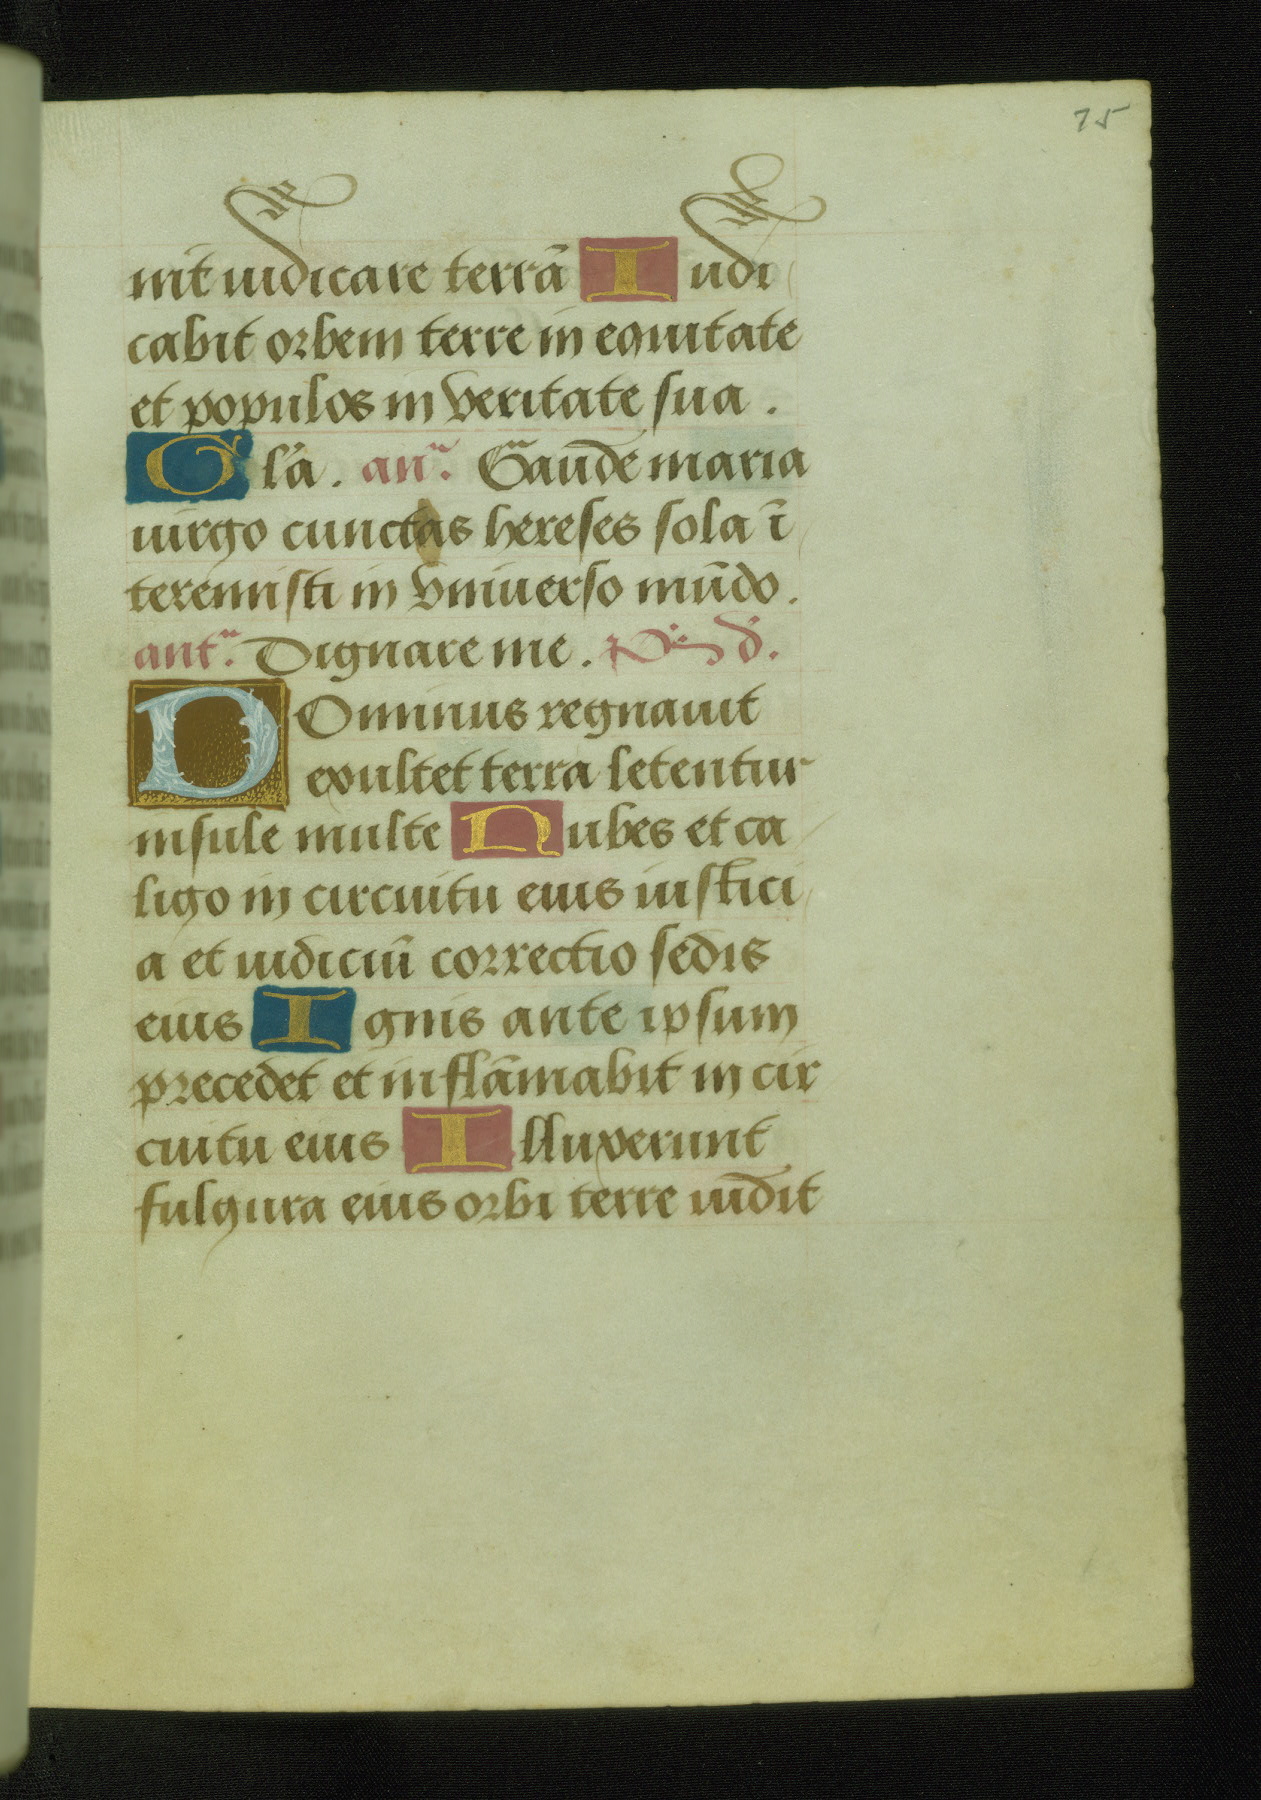 75
nit iudicare terrā Iudi
cabit orbem terre in equitate
et populos in veritate sua.
Glā. anª. Gaude maria
uirgo cunctas hereses sola ī
teremisti in vniuerso mūdo.
antª. Dignare me. p̄s d.
DOminus regnauit
exultet terra letentur
insule multe Nubes et ca
ligo in circuitu eius iustici
a et iudiciū correctio sedis
eius Ignis ante ipsum
precedet et inflāmabit in cir
cuitu eius Illuxerunt
fulgura eius orbi terre uidit